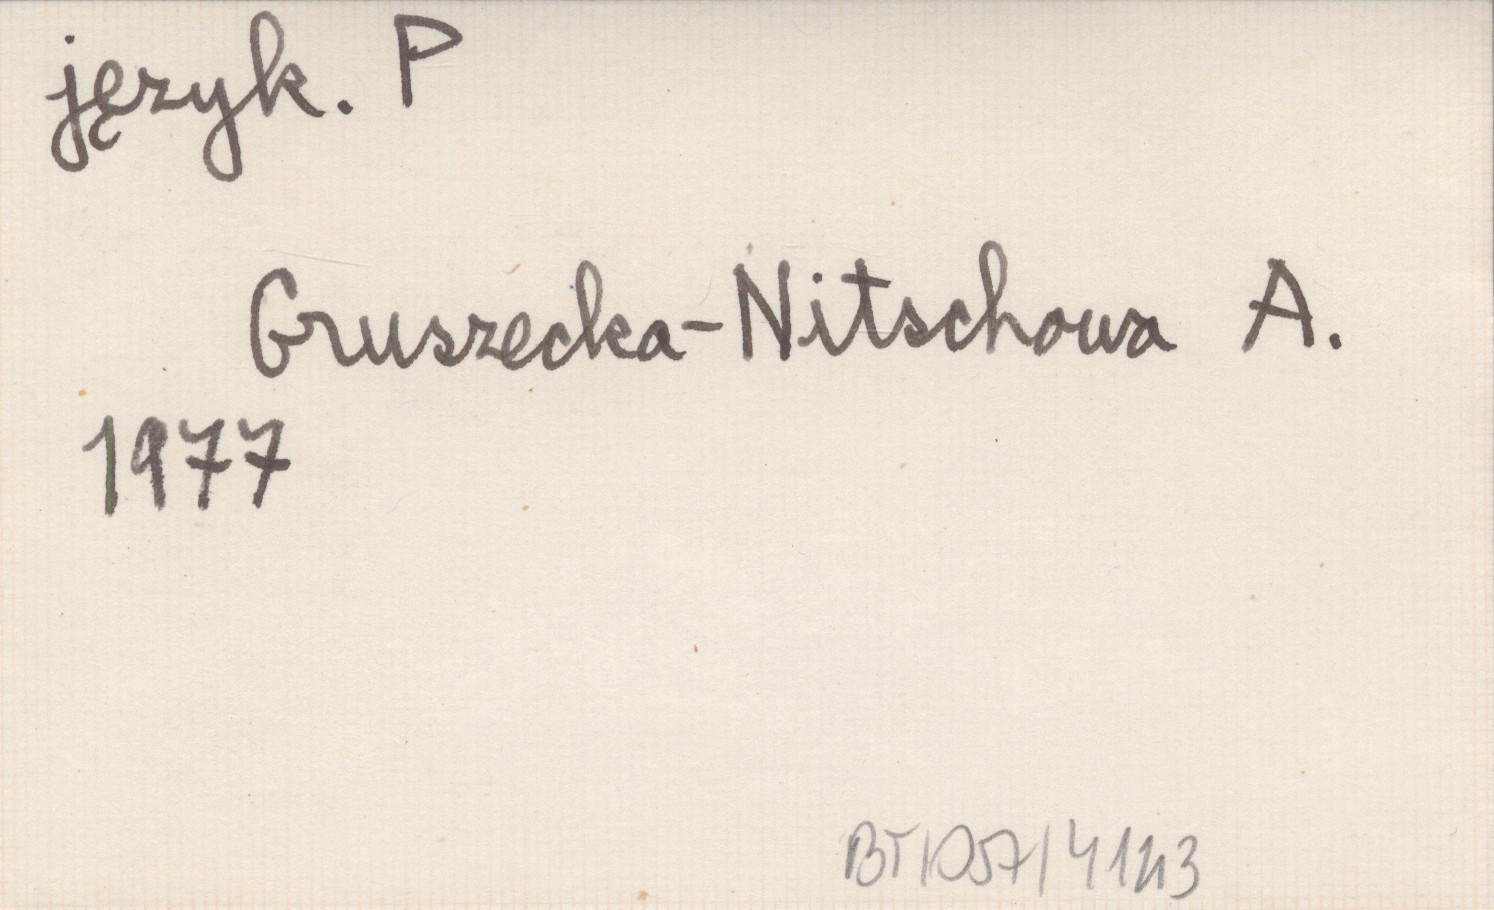 język. P
Gruszecka-Nitschowa A.
1977
BT/057/4143